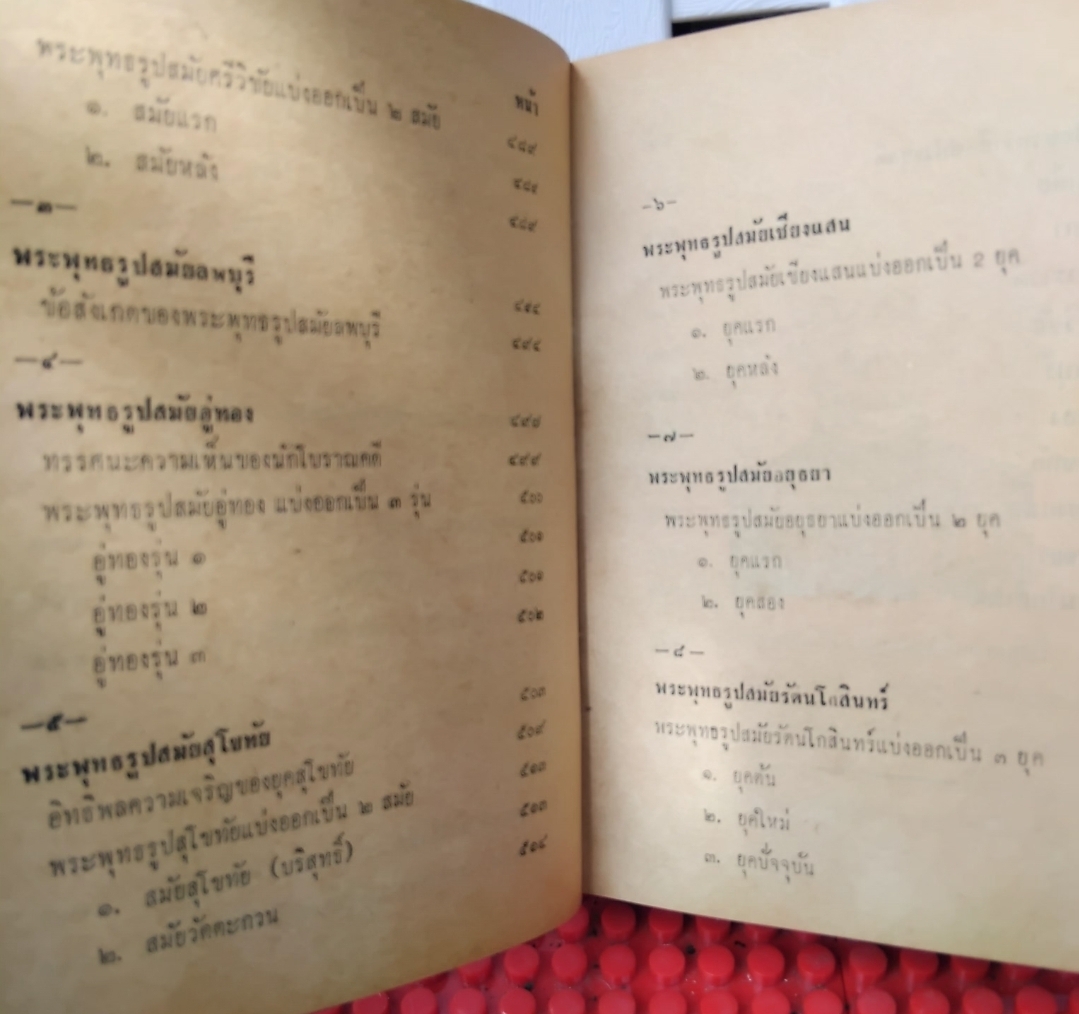 หน้า
พระพุทธรูปสมัยศรีวิชัยแบ่งออกเป็น ๒ สมัย ๔๘๙
๑. สมัยแรก ๔๘๙
๒. สมัยหลัง ๔๘๙
—๓—
พระพุทธรูปสมัยลพบุรี
ข้อสังเกตของพระพุทธรูปสมัยลพบุรี ๔๙๔
—๔—
พระพุทธรูปสมัยอู่ทอง
ทรรศนะความเห็นของนักโบราณคดี ๔๙๙
พระพุทธรูปสมัยอู่ทอง แบ่งออกเป็น ๓ รุ่น ๕๐๐
อู่ทองรุ่น ๑ ๕๐๑
อู่ทองรุ่น ๒ ๕๐๑
อู่ทองรุ่น ๓ ๕๐๒
—๕—
พระพุทธรูปสมัยสุโขทัย ๕๐๓
อิทธิพลความเจริญของยุคสุโขทัย ๕๐๙
พระพุทธรูปสุโขทัยแบ่งออกเป็น ๒ สมัย ๕๑๓
๑. สมัยสุโขทัย (บริสุทธิ์) ๕๑๓
๒. สมัยวัดตะกวน ๕๑๔
—๖—
พระพุทธรูปสมัยเชียงแสน
พระพุทธรูปสมัยเชียงแสนแบ่งออกเป็น 2 ยุค
๑. ยุคแรก
๒. ยุคหลัง
—๗—
พระพุทธรูปสมัยอยุธยา
พระพุทธรูปสมัยอยุธยาแบ่งออกเป็น ๒ ยุค
๑. ยุคแรก
๒. ยุคสอง
—๘—
พระพุทธรูปสมัยรัตนโกสินทร์
พระพุทธรูปสมัยรัตนโกสินทร์แบ่งออกเป็น ๓ ยุค
๑. ยุคต้น
๒. ยุคใหม่
๓. ยุคปัจจุบัน